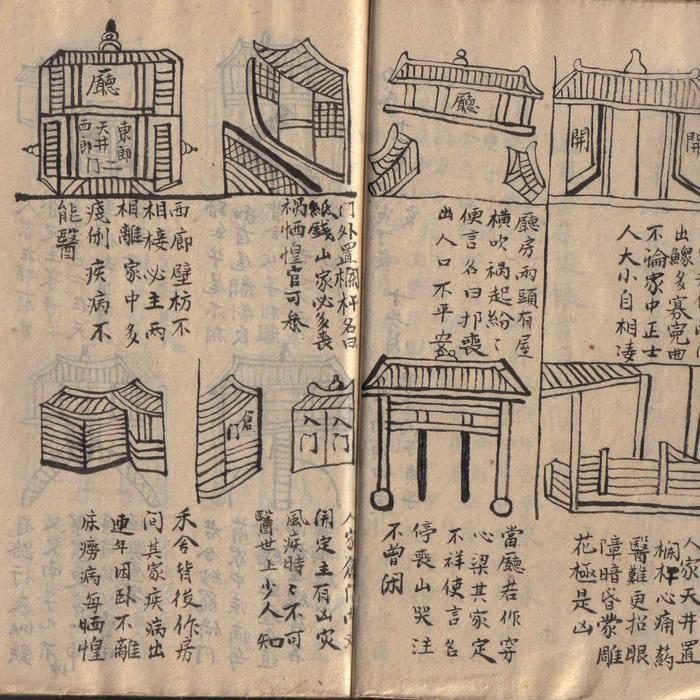 開
開
出鰥多寡寃曲
不論家中正士
人大小自相凌
廳
廳房兩頭有屋
橫吹禍起紛〻
便言名曰扛喪
出人口不平安
人家天井置
欄杆心痛葯
醫難更招眼
障暗昏蒙雕
花極是凶
當廳若作穿
心梁其家定
不祥使言名
停喪山哭注
不曾闲
门外置欄杆名曰
紙錢山家必多喪
禍恓惶官可叅
廳
東廊
天井
西廊
门
西廊壁枋不
相接必主兩
相離家中多
疾病不
能醫
入门
入门
倉门
人家倉门
開定主有凶灾
風疾時〻不可
醫世上少人知
禾舍背後作房
问其家疾病出
連年因卧不離
床癆病每恓惶